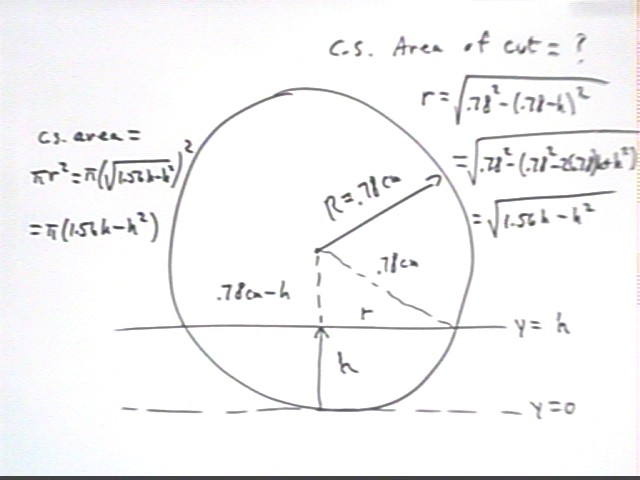 c.s. Area of cut = ?
r = √.78² - (.78-h)²
= √.78² - (.78² - 2(.78)h + h²)
= √1.56h - h²
c.s. area =
πr² = π(√1.56h-h²)²
= π(1.56h-h²)
R = .78cm
.78cm
.78cm-h
r
y = h
h
y=0